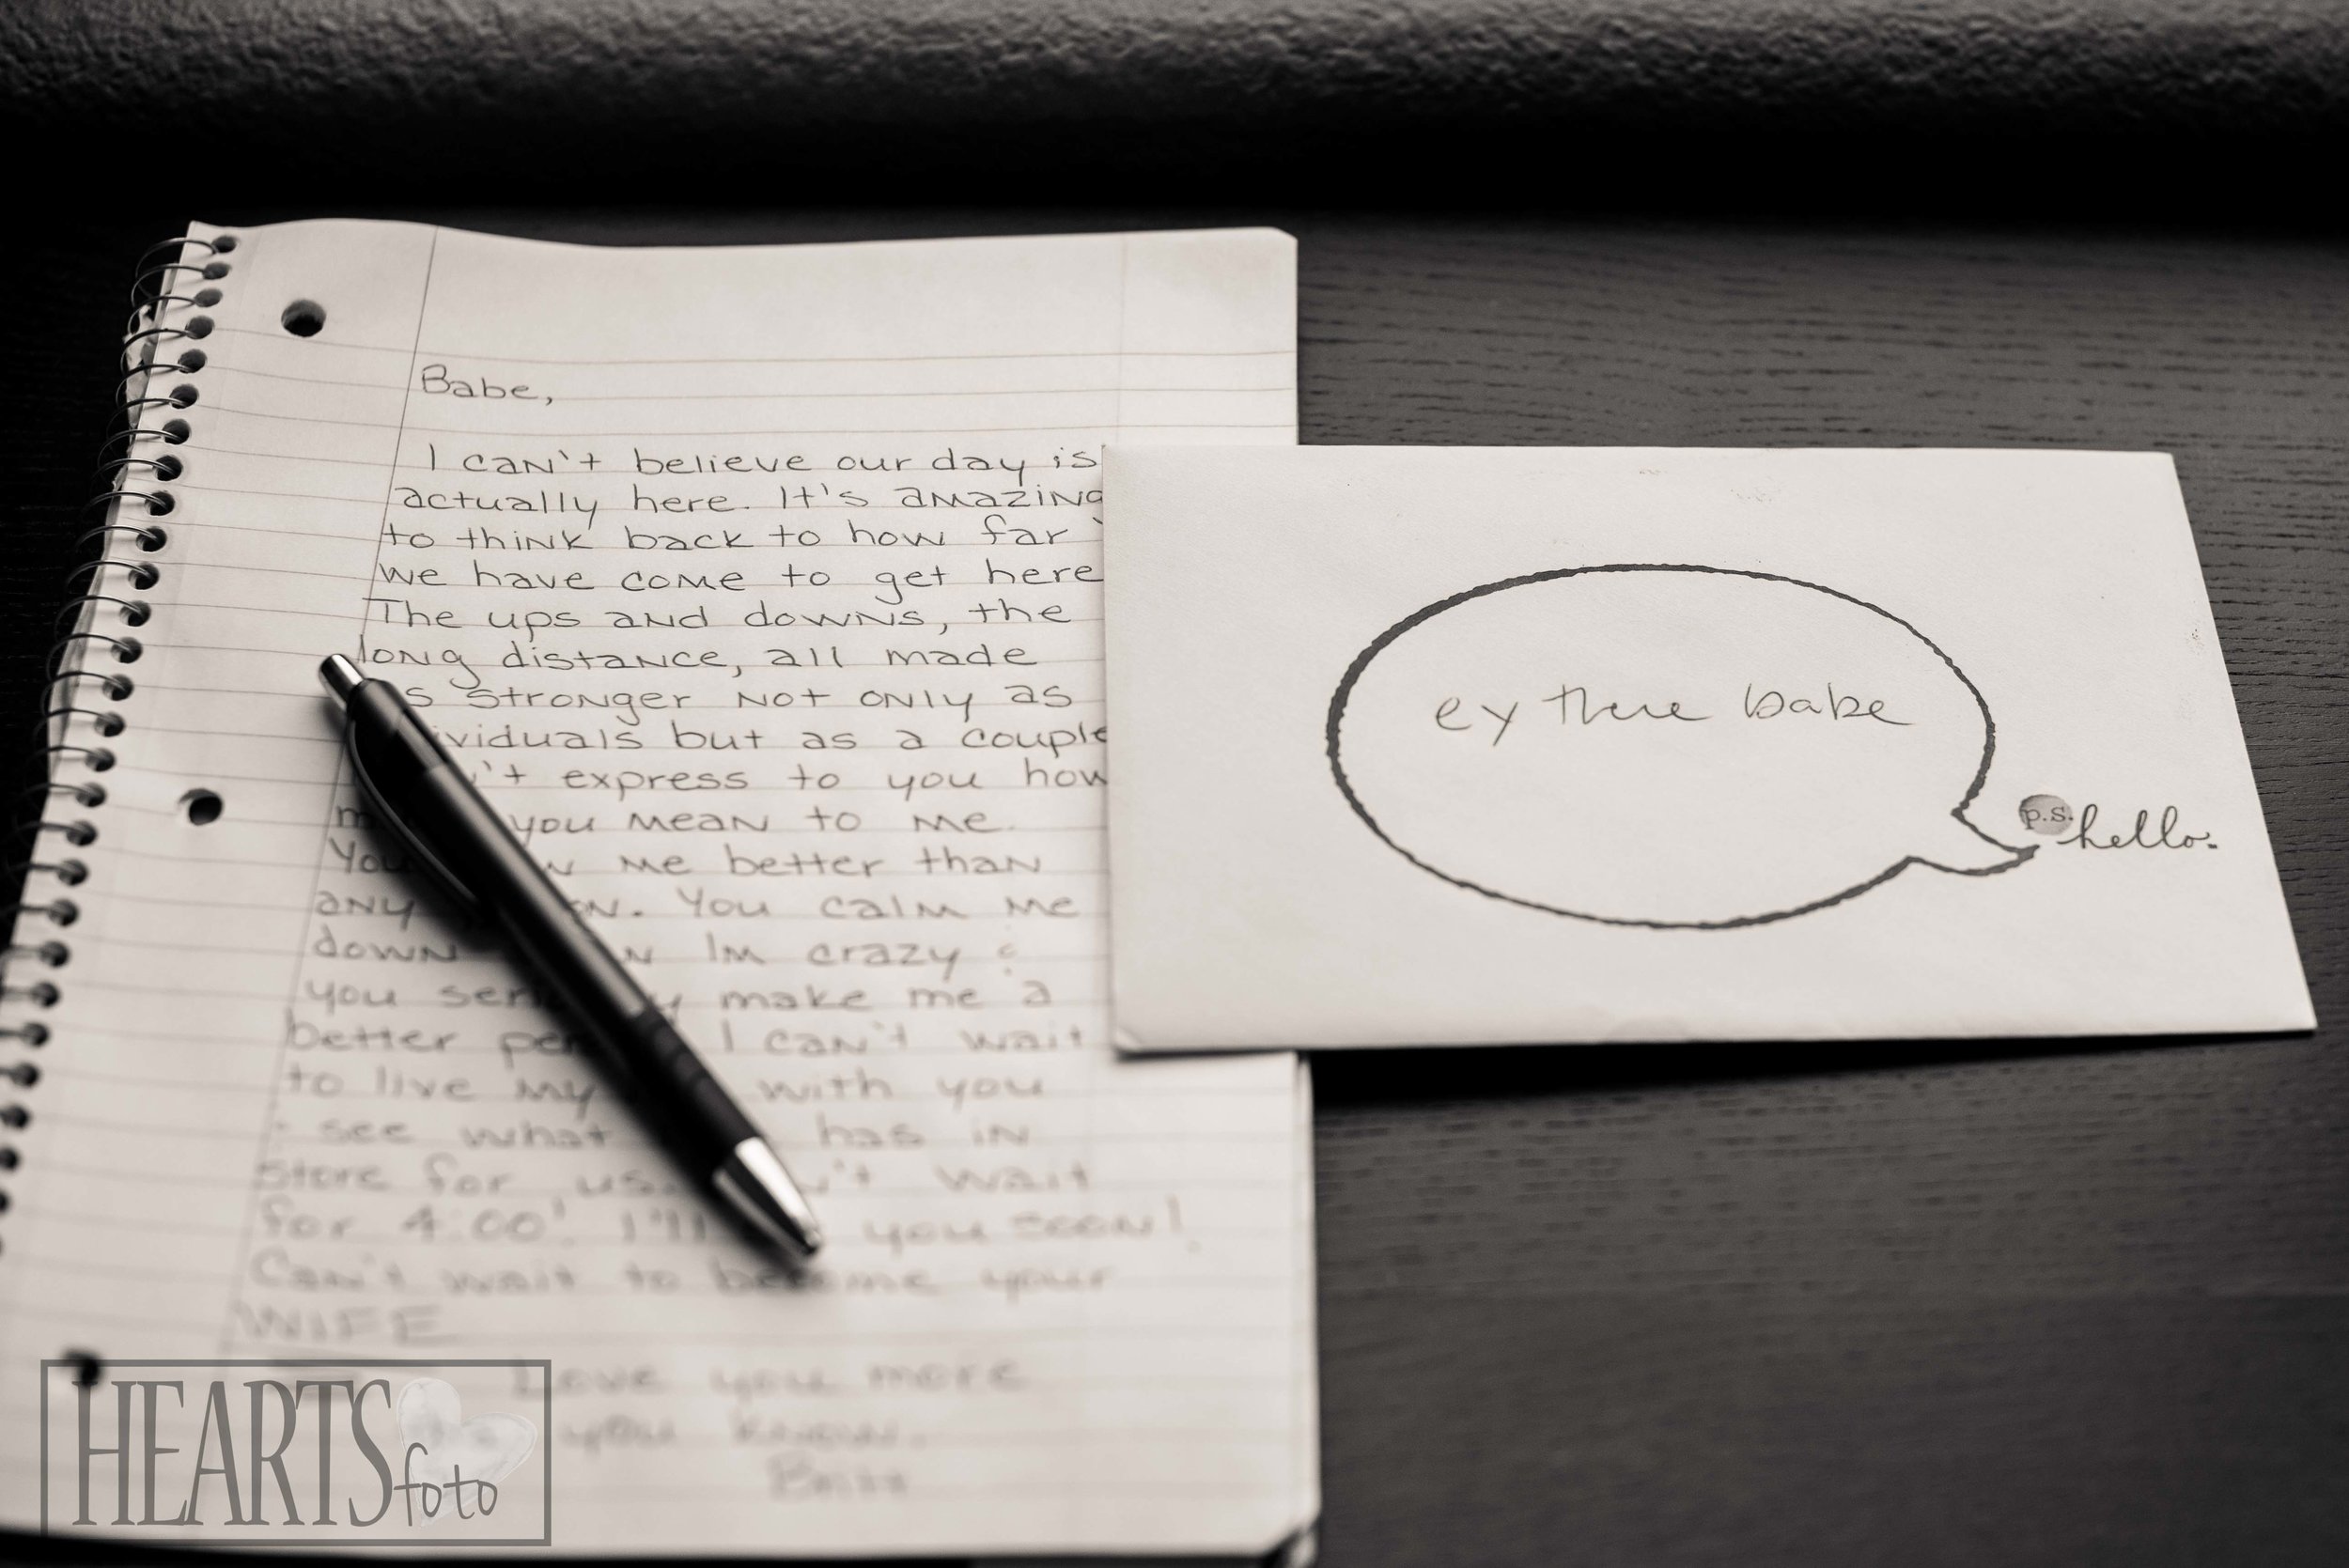 Babe,
I can't believe our day is
actually here. It's amazing
to think back to how far
we have come to get here
The ups and downs, the
long distance, all made
s stronger not only as
ividuals but as a couple
't express to you how
you mean to me.
me better than
any on. You calm me
down Im crazy &
you make me a
better I can't wait
to live my with you
& see what has in
store for us. 't wait
for 4:00! I'll you soon!
Can't wait to become your
WIFE
Love you more
you know.
ey there babe
p.s. hello.
HEARTS
foto